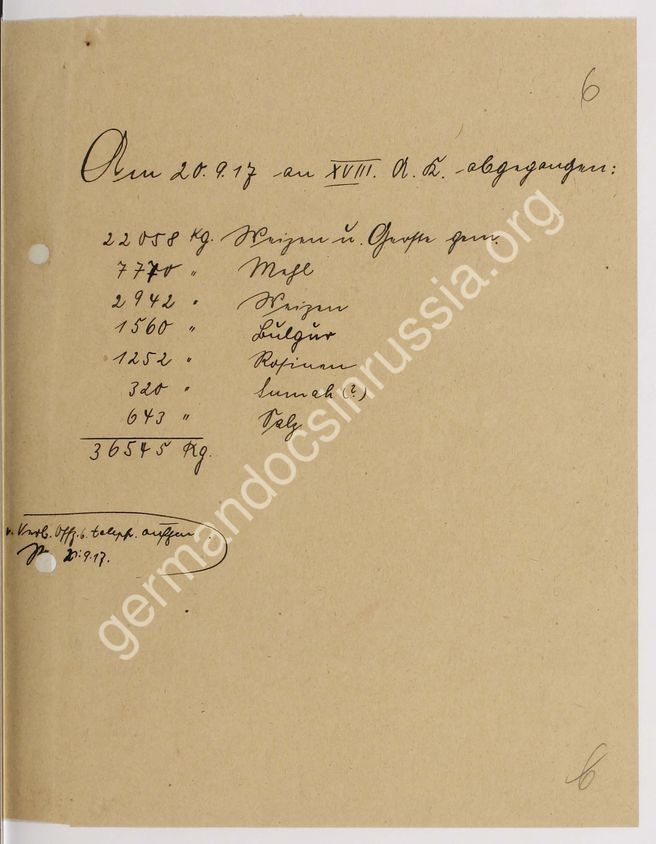 6
Am 20.9.17 an XVIII. A. K. abgegangen:
22058 Kg. Weizen u. Gerste gem.
7770 " Mehl
2942 " Weizen
1560 " Bulgur
1252 " Rosinen
320 " Sumak (?)
643 " Salz
36545 Kg.
v. Verb. Offz. b. teleph. aufgen.
20.9.17.
6
germandocsinrussia.org